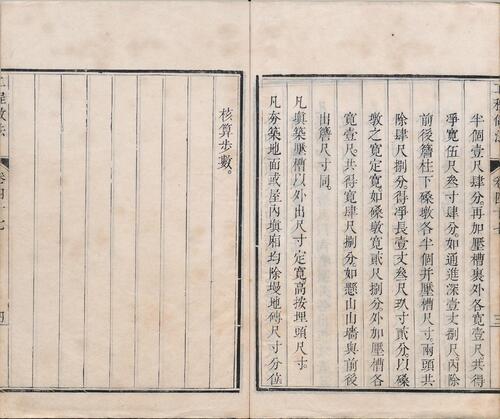 半個壹尺肆分再加壓槽裏外各寬壹尺共得
凈寬伍尺叁寸肆分如通進深壹丈捌尺內除
前後簷柱下磉墩各半個并壓槽尺寸兩頭共
除肆尺捌分得凈長壹丈叁尺玖寸貳分以磉
墩之寬定寬如磉墩寬貳尺捌分外加壓槽各
寬壹尺共得寬肆尺捌分如懸山山墻與前後
出簷尺寸同
凡塡築壓槽以外出尺寸定寬高按埋頭尺寸
凡夯築地面或屋內塡廂均除墁地磚尺寸分位
核算步數。
工程做法
卷四十七
四